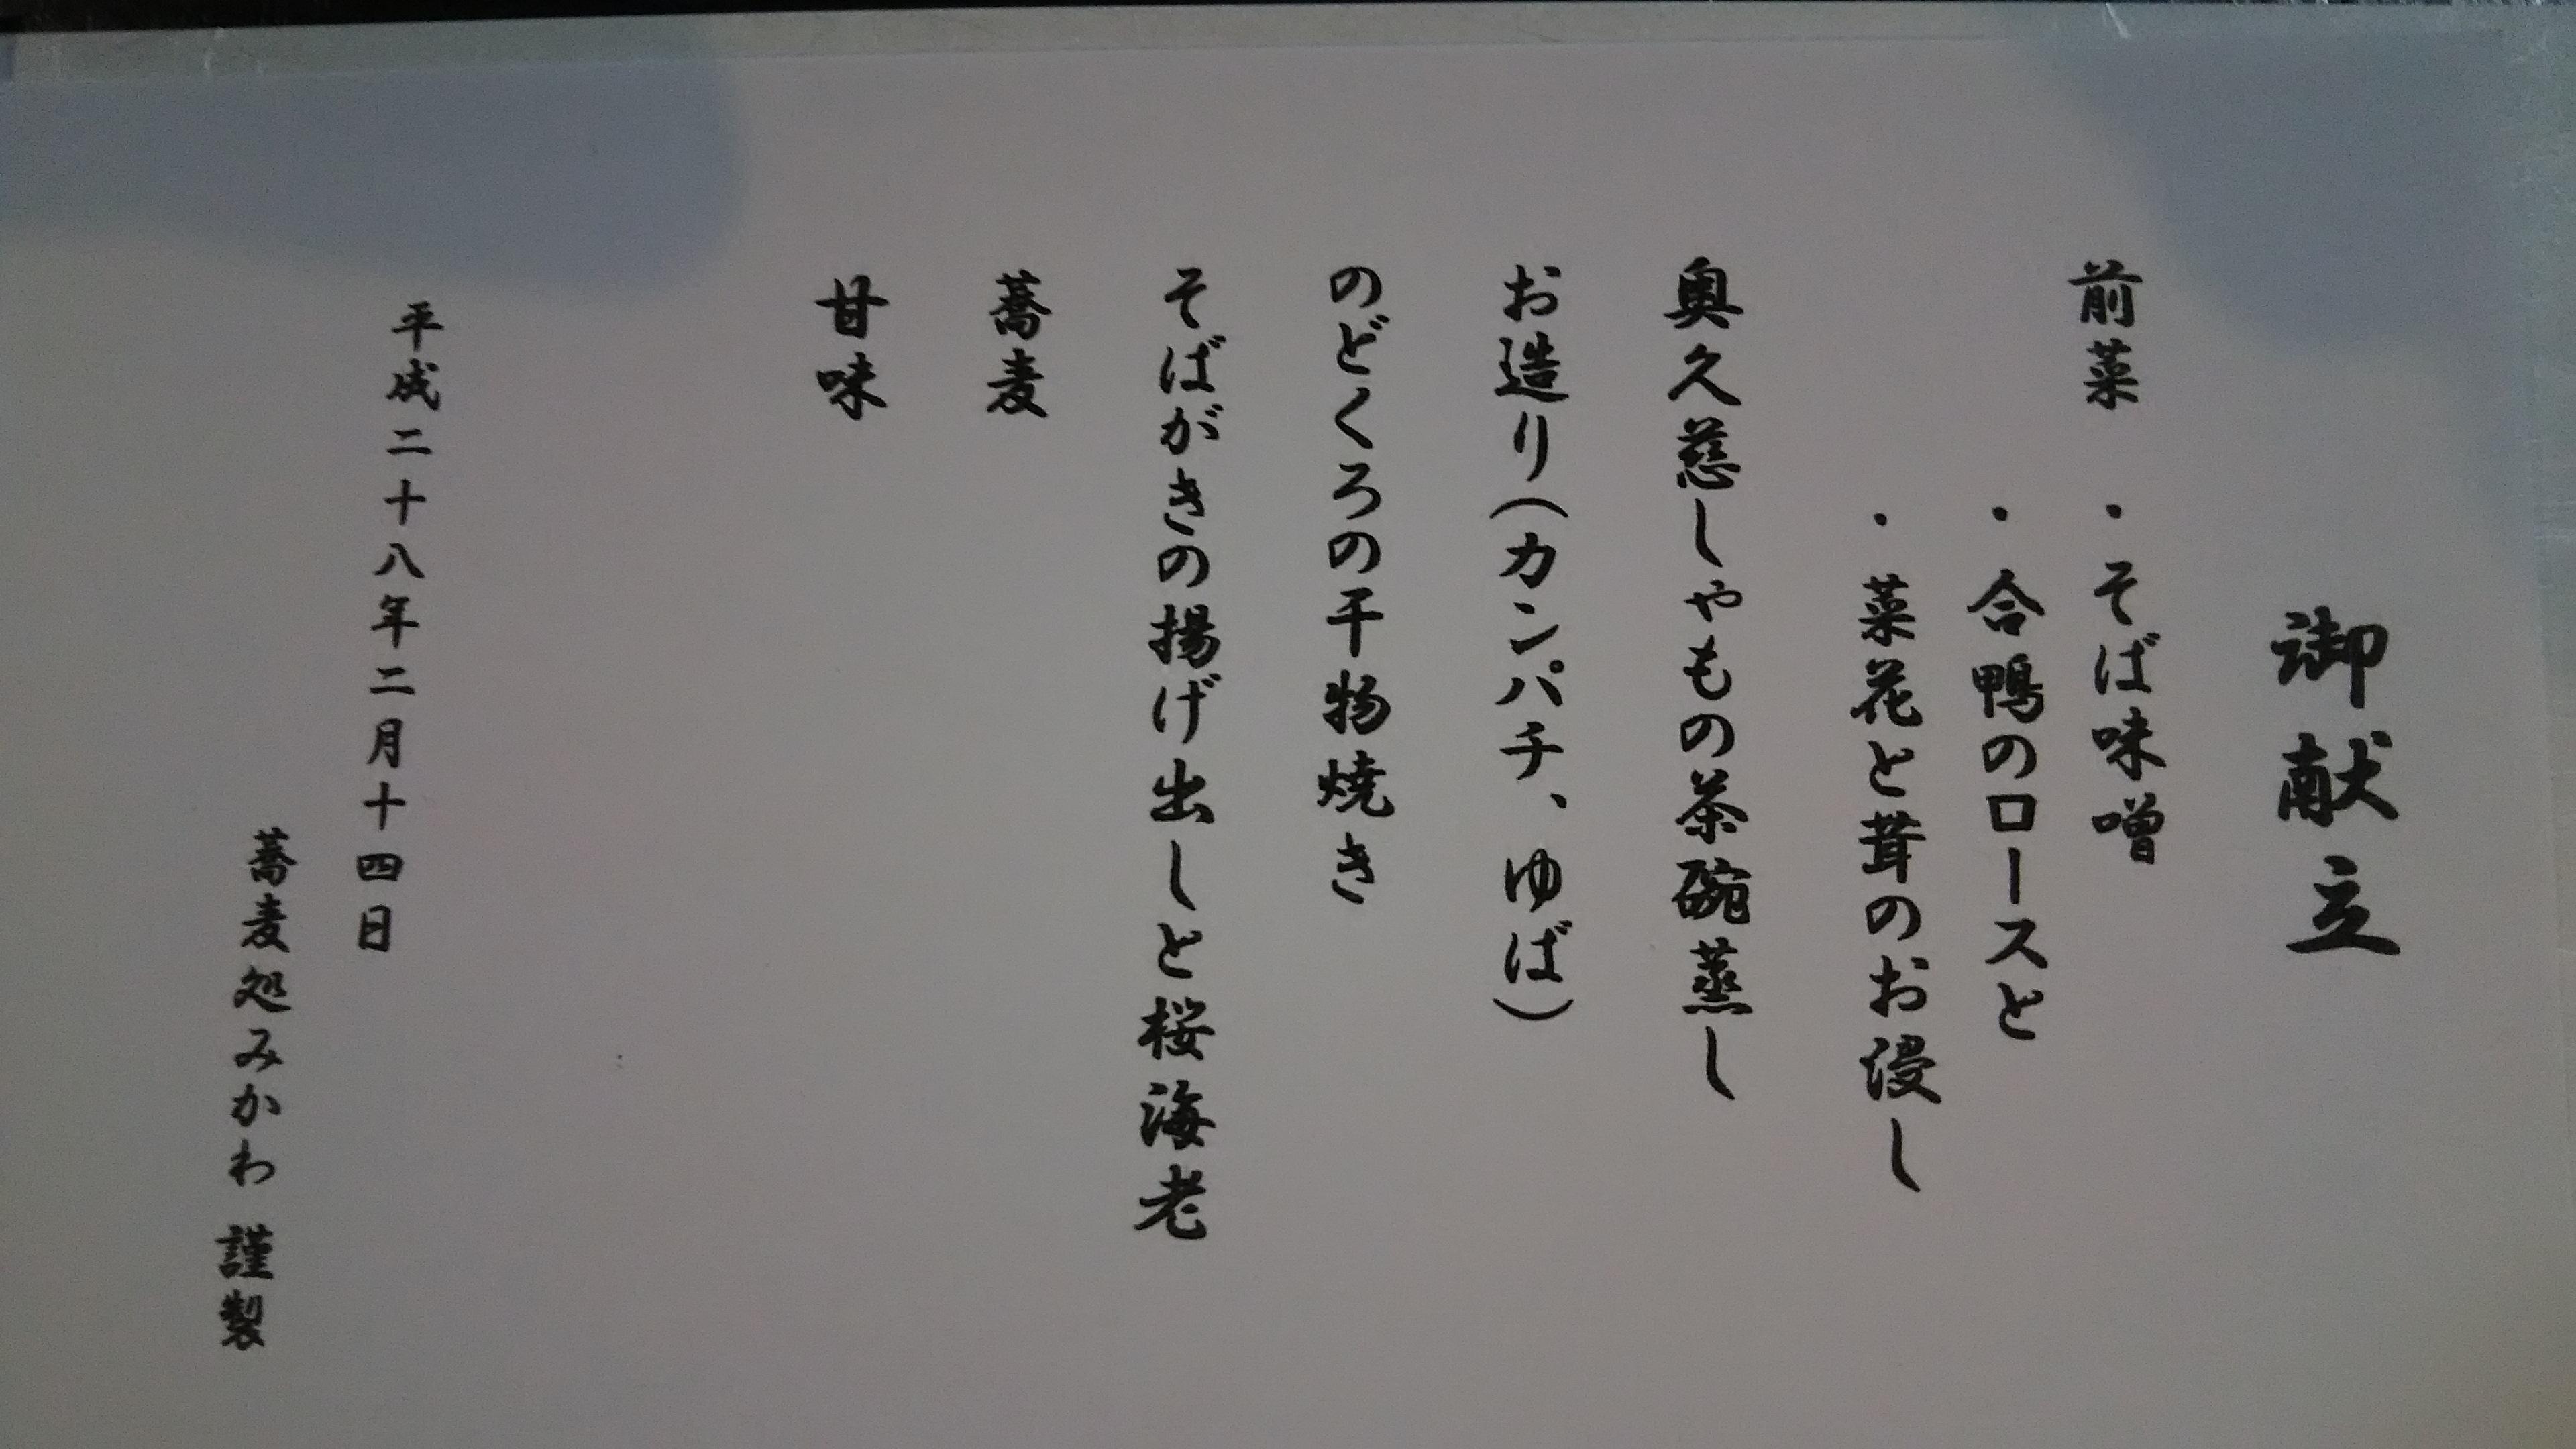 御献立
前菜 ・そば味噌
・合鴨のロースと
・菜花と茸のお浸し
奥久慈しゃもの茶碗蒸し
お造り(カンパチ、ゆば)
のどくろの干物焼き
そばがきの揚げ出しと桜海老
蕎麦
甘味
平成二十八年二月十四日
蕎麦処みかわ 謹製